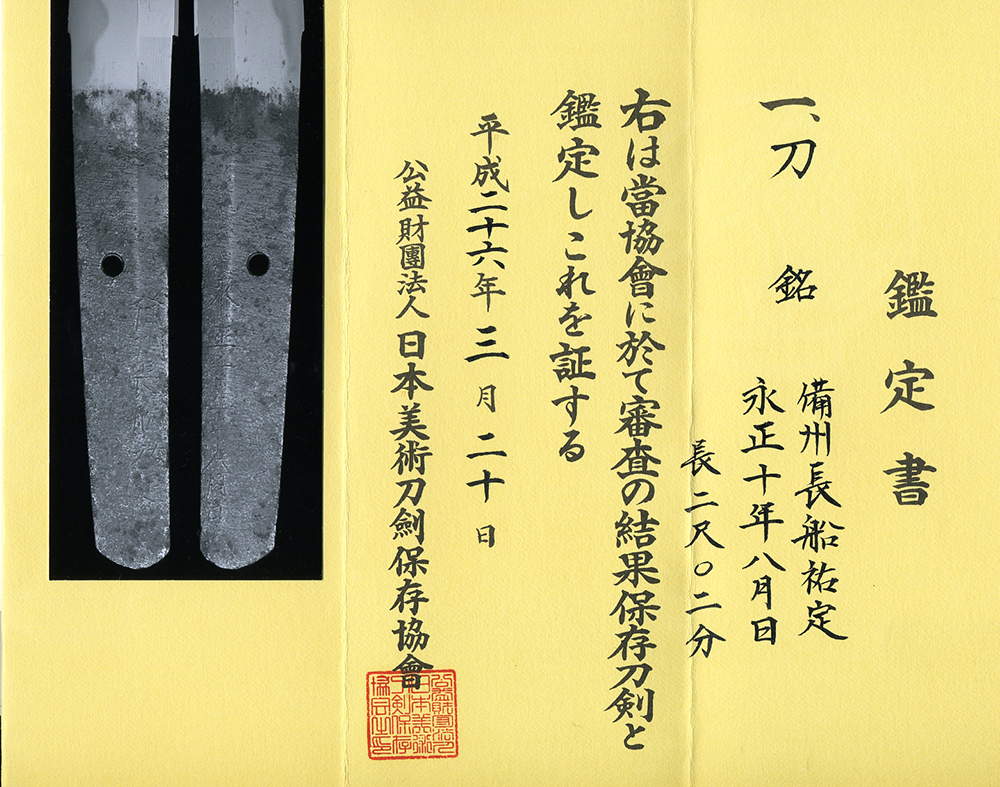 鑑定書
一、刀 銘
備州長船祐定
永正十年八月日
長二尺〇二分
右は當協會に於て審査の結果保存刀剣と
鑑定しこれを証する
平成二十六年三月二十日
公益財團法人日本美術刀劍保存協會